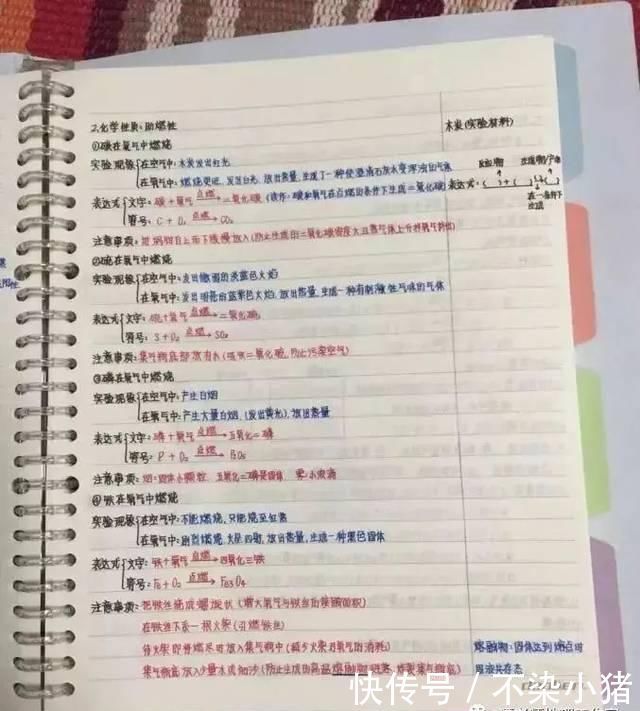 2.化学性质:助燃性
木炭(实验材料)
①碳在氧气中燃烧
实验现象 在空气中:木炭发出红光
反应物 生成物/产物
在氧气中:燃烧更旺,发出白光,放出热量,生成了一种使澄清石灰水变浑浊的气体
表达式 文字:碳+氧气 点燃→ 二氧化碳 (读作:碳和氧气在点燃的条件下生成二氧化碳)
表达式:( )+( )→( )
在一条件下
生成
符号:C+O₂ 点燃→ CO₂
注意事项:
②硫在氧气中燃烧
实验现象 在空气中:发出微弱的淡蓝色火焰
在氧气中:发出明亮的蓝紫色火焰,放出热量,生成一种有刺激性气味的气体
表达式 文字:硫+氧气 点燃→ 二氧化硫
符号:S+O₂ 点燃→ SO₂
注意事项:集气瓶底部放有水(吸收二氧化硫,防止污染空气)
③磷在氧气中燃烧
实验现象 在空气中:产生白烟
在氧气中:产生大量白烟,(发出黄光),放出热量
表达式 文字:磷+氧气 点燃→ 五氧化二磷
符号:P+O₂ 点燃→ P₂O₅
注意事项:烟:固体小颗粒 五氧化二磷是固体 雾:小液滴
④铁在氧气中燃烧
实验现象 在空气中:不能燃烧,只能烧至红热
在氧气中:剧烈燃烧,火星四射,放出热量,生成一种黑色固体
表达式 文字:铁+氧气 点燃→ 四氧化三铁
符号:Fe+O₂ 点燃→ Fe₃O₄
注意事项:把铁丝绕成螺旋状(增大氧气与铁丝的接触面积)
在铁丝下系一根火柴(引燃铁丝)
待火柴即将燃尽时放入集气瓶中(减少火柴对氧气的消耗)
熔融物:固体达到熔点时
集气瓶底放入少量水或细沙(防止生成的高温熔融物
固液共存态
快传号/不染小猪